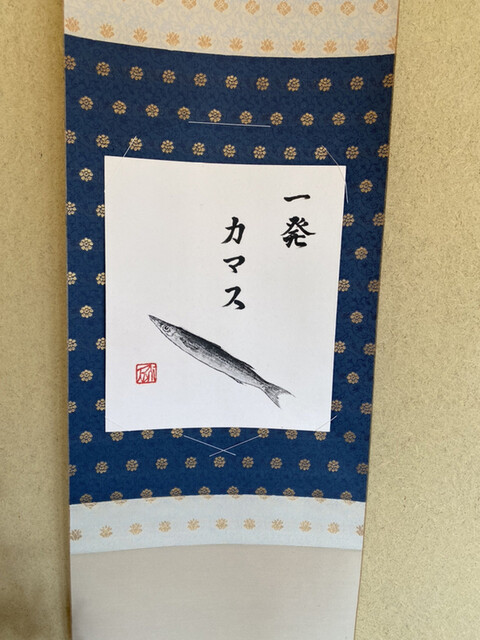 一発
カマス